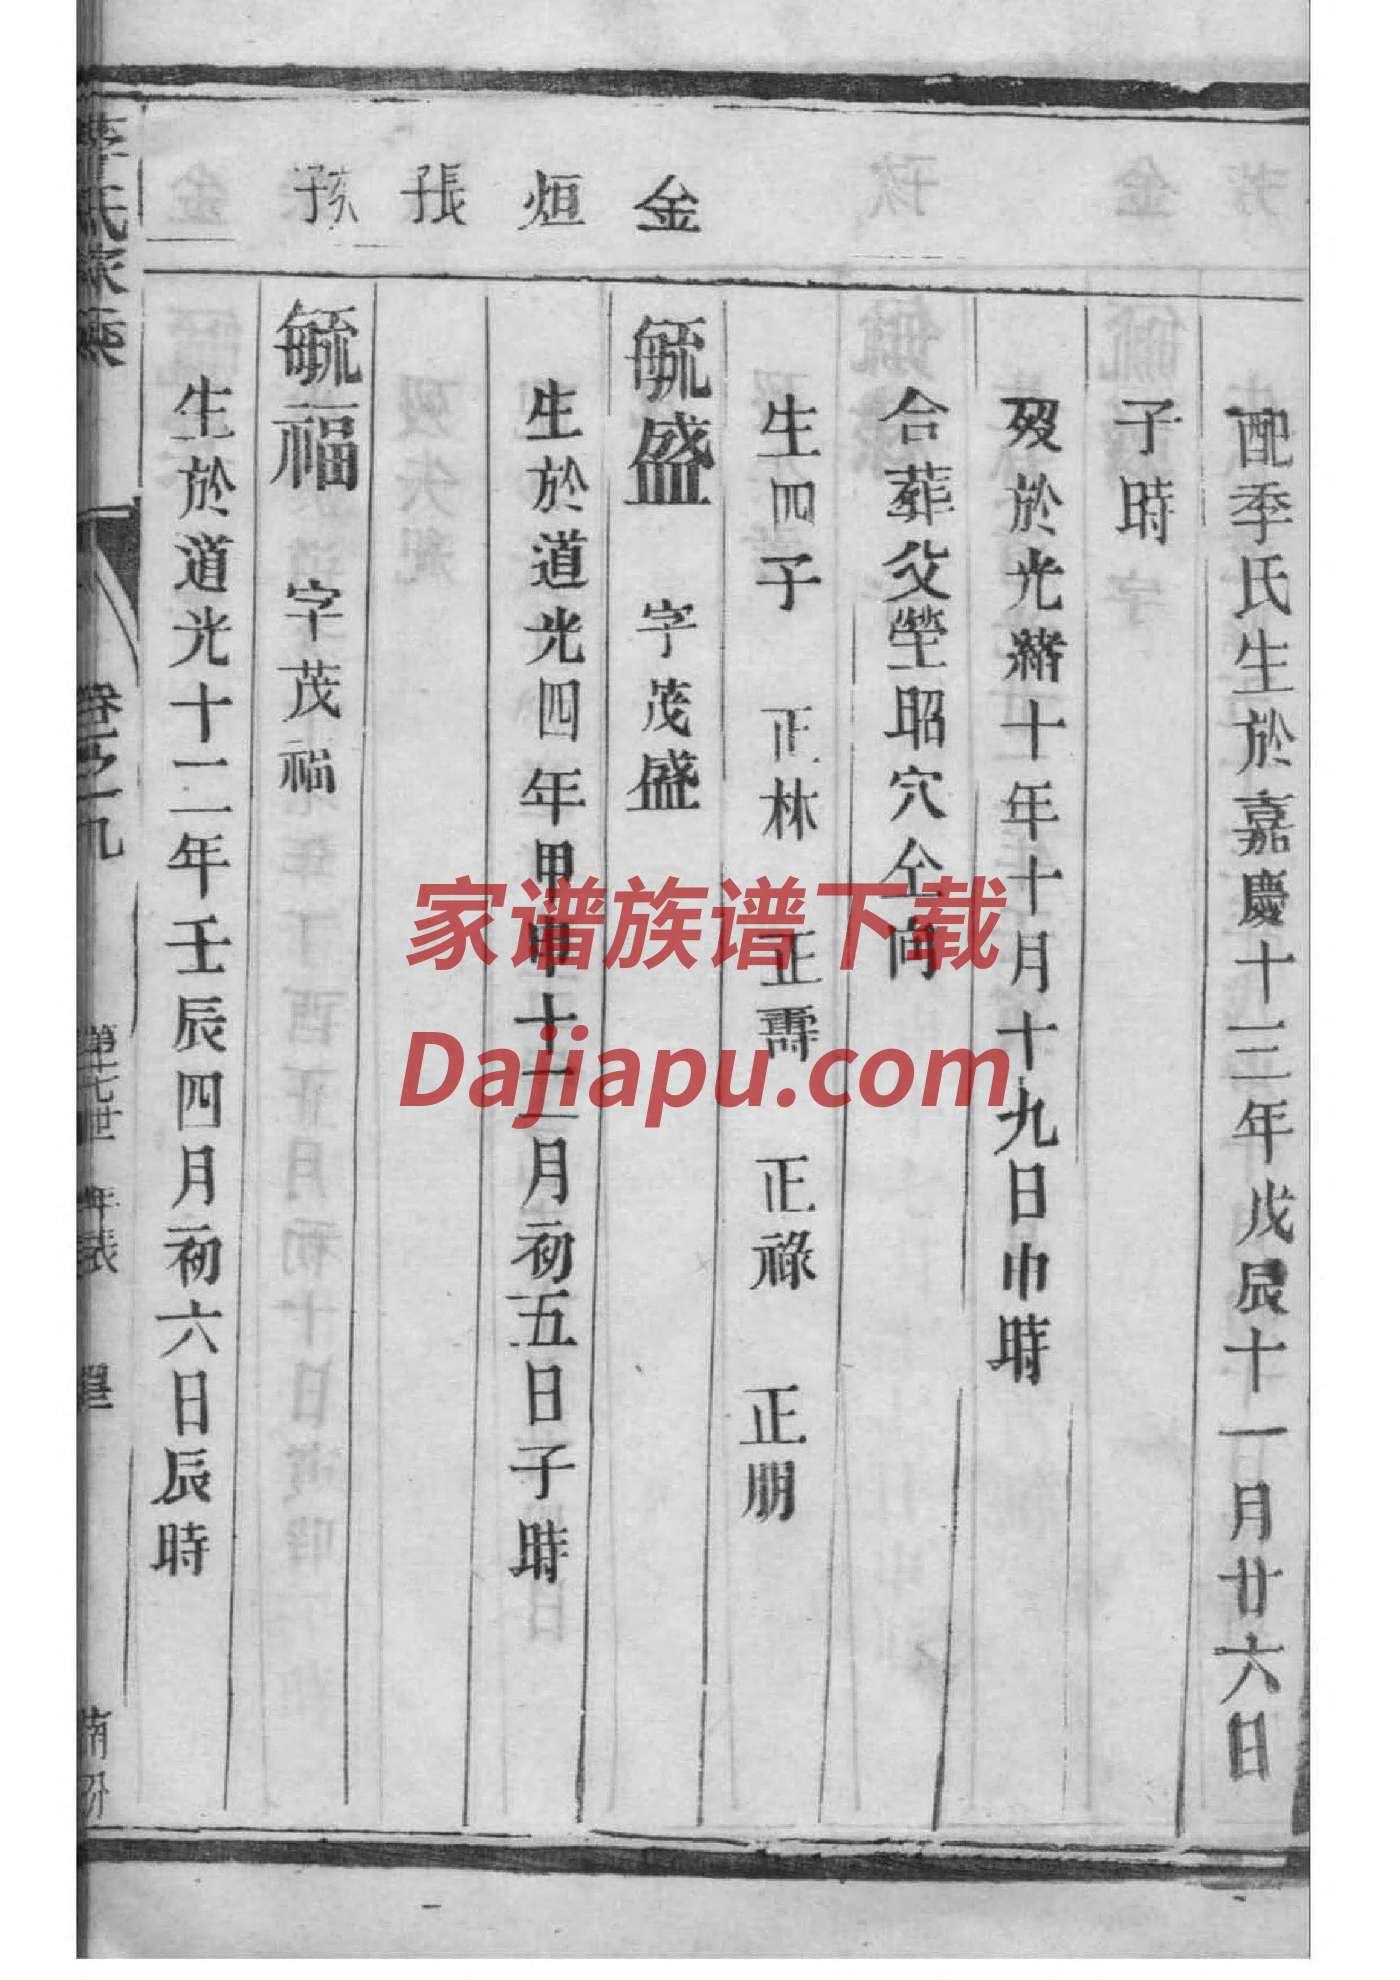 配季氏生於嘉慶十三年戊辰十一月廿六日
子時
歿於光緒十年十月十九日巾時
合葬父塋昭穴仝向
生四子 正林 正壽 正祿 正朋
金
毓盛 字茂盛
烜
生於道光四年甲申十二月初五日子時
張
孩
毓福 字茂福
生於道光十二年壬辰四月初六日辰時
氏家乘
卷之九
第十七世 年表
家谱族谱下载
Dajiapu.com